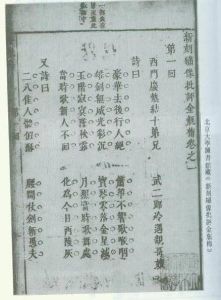 新刻繡像批評金瓶梅卷之一
第一回
西門慶熱結十弟兄　武二郎冷遇親哥嫂
詩曰
豪華去後行人絕　簫箏不響歌喉咽
雄劍無威光彩沉　寶琴零落金星滅
玉階寂寞墜秋露　月照當時歌舞處
當時歌舞人不回　化為今日西陵灰
又詩曰
二八佳人體似酥　腰間仗劍斬愚夫
北京大學圖書館藏《新刻繡像批評金瓶梅》